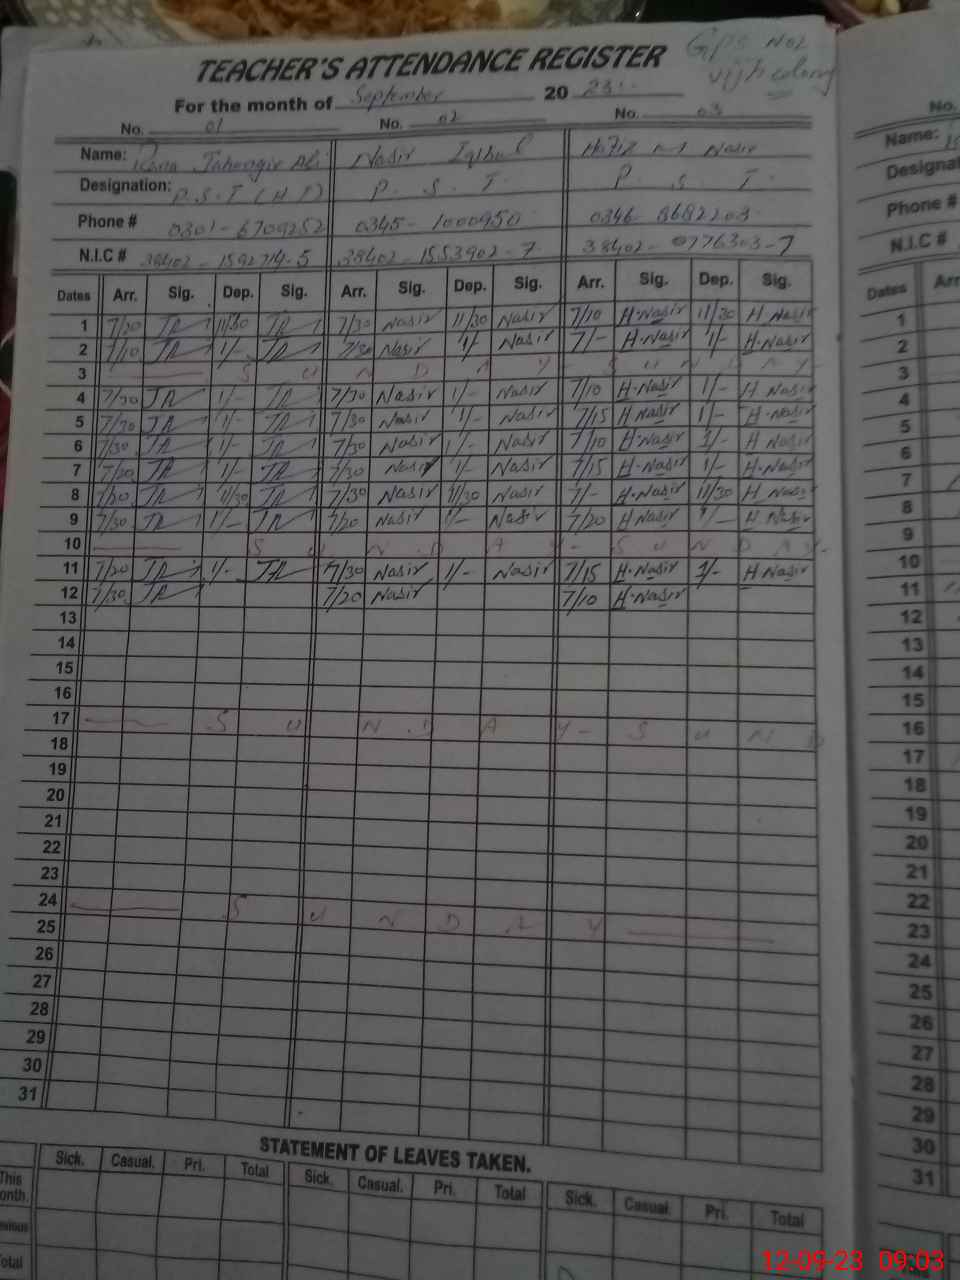 GPS No2
TEACHER'S ATTENDANCE REGISTER
vijh colony
For the month of September 20 23
No. 01 No. 02 No. 03
Name: Rana Jahangir Ali Nasir Iqbal Hafiz M Nasir
Designation: P.S.T (HT) P. S. T P. S. T.
Phone # 0301-6709252 0345-1000950 0346-8682203
N.I.C # 38402-1592714-5 38402-1553902-7 38402-0776303-7
Dates Arr. Sig. Dep. Sig. Arr. Sig. Dep. Sig. Arr. Sig. Dep. Sig.
1 7/20 JA 11/30 JA 7/30 Nasir 11/30 Nasir 7/10 H.Nasir 11/30 H.Nasir
2 7/10 JA 1/- JA 7/30 Nasir 1/- Nasir 7/- H.Nasir 1/- H.Nasir
3 S U N D A Y - S U N D A Y -
4 7/30 JA 1/- JA 7/30 Nasir 1/- Nasir 7/10 H.Nasir 1/- H Nasir
5 7/30 JA 1/- JA 7/30 Nasir 1/- Nasir 7/15 H Nasir 1/- H.Nasir
6 7/30 JA 1/- JA 7/30 Nasir 1/- Nasir 7/10 H.Nasir 1/- H Nasir
7 7/20 JA 1/- JA 7/30 Nasir 1/- Nasir 7/15 H.Nasir 1/- H.Nasir
8 7/20 JA 11/30 JA 7/30 Nasir 11/30 Nasir 7/- H.Nasir 11/30 H Nasir
9 7/30 JA 1/- JA 7/20 Nasir 1/- Nasir 7/20 H Nasir 1/- H.Nasir
10 S U N D A Y - S U N D A Y -
11 7/20 JA 1/- JA 7/30 Nasir 1/- Nasir 7/15 H.Nasir 1/- H Nasir
12 7/30 JA 7/20 Nasir 7/10 H.Nasir
13
14
15
16
17 S U N D A Y - S U N D
18
19
20
21
22
23
24 S U N D A Y
25
26
27
28
29
30
31
STATEMENT OF LEAVES TAKEN.
Sick. Casual. Pri. Total Sick. Casual. Pri. Total Sick. Casual. Pri. Total
This
onth.
otal
No.
Name:
Designa
Phone #
N.I.C #
Dates Arr
1
2
3
4
5
6
7
8
9
10
11
12
13
14
15
16
17
18
19
20
21
22
23
24
25
26
27
28
29
30
31
12-09-23 09:03